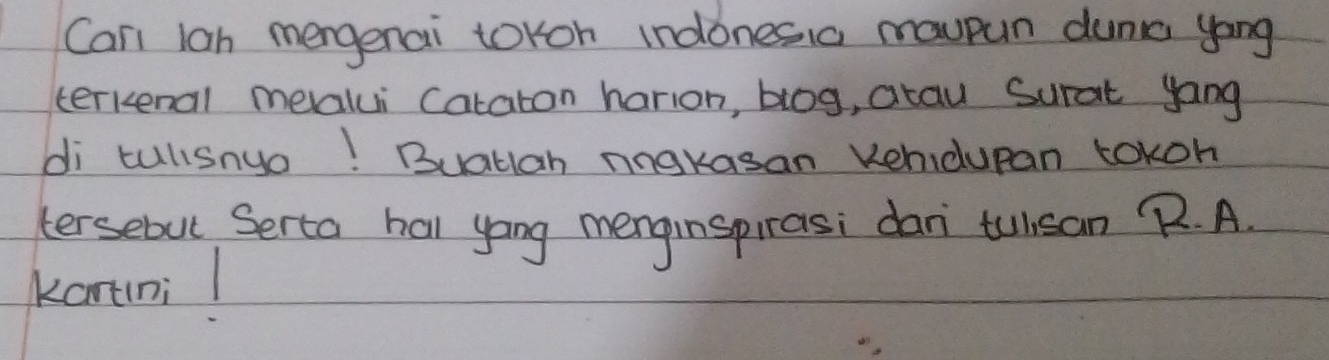 Cari lah mengenai tokoh indonesia maupun dunia yang
terkenal melalui Catatan harian, blog, atau Surat yang
di tulisnya ! Buatlah ringkasan kehidupan tokoh
tersebut Serta hal yang menginspirasi dari tulisan R.A.
kartini !